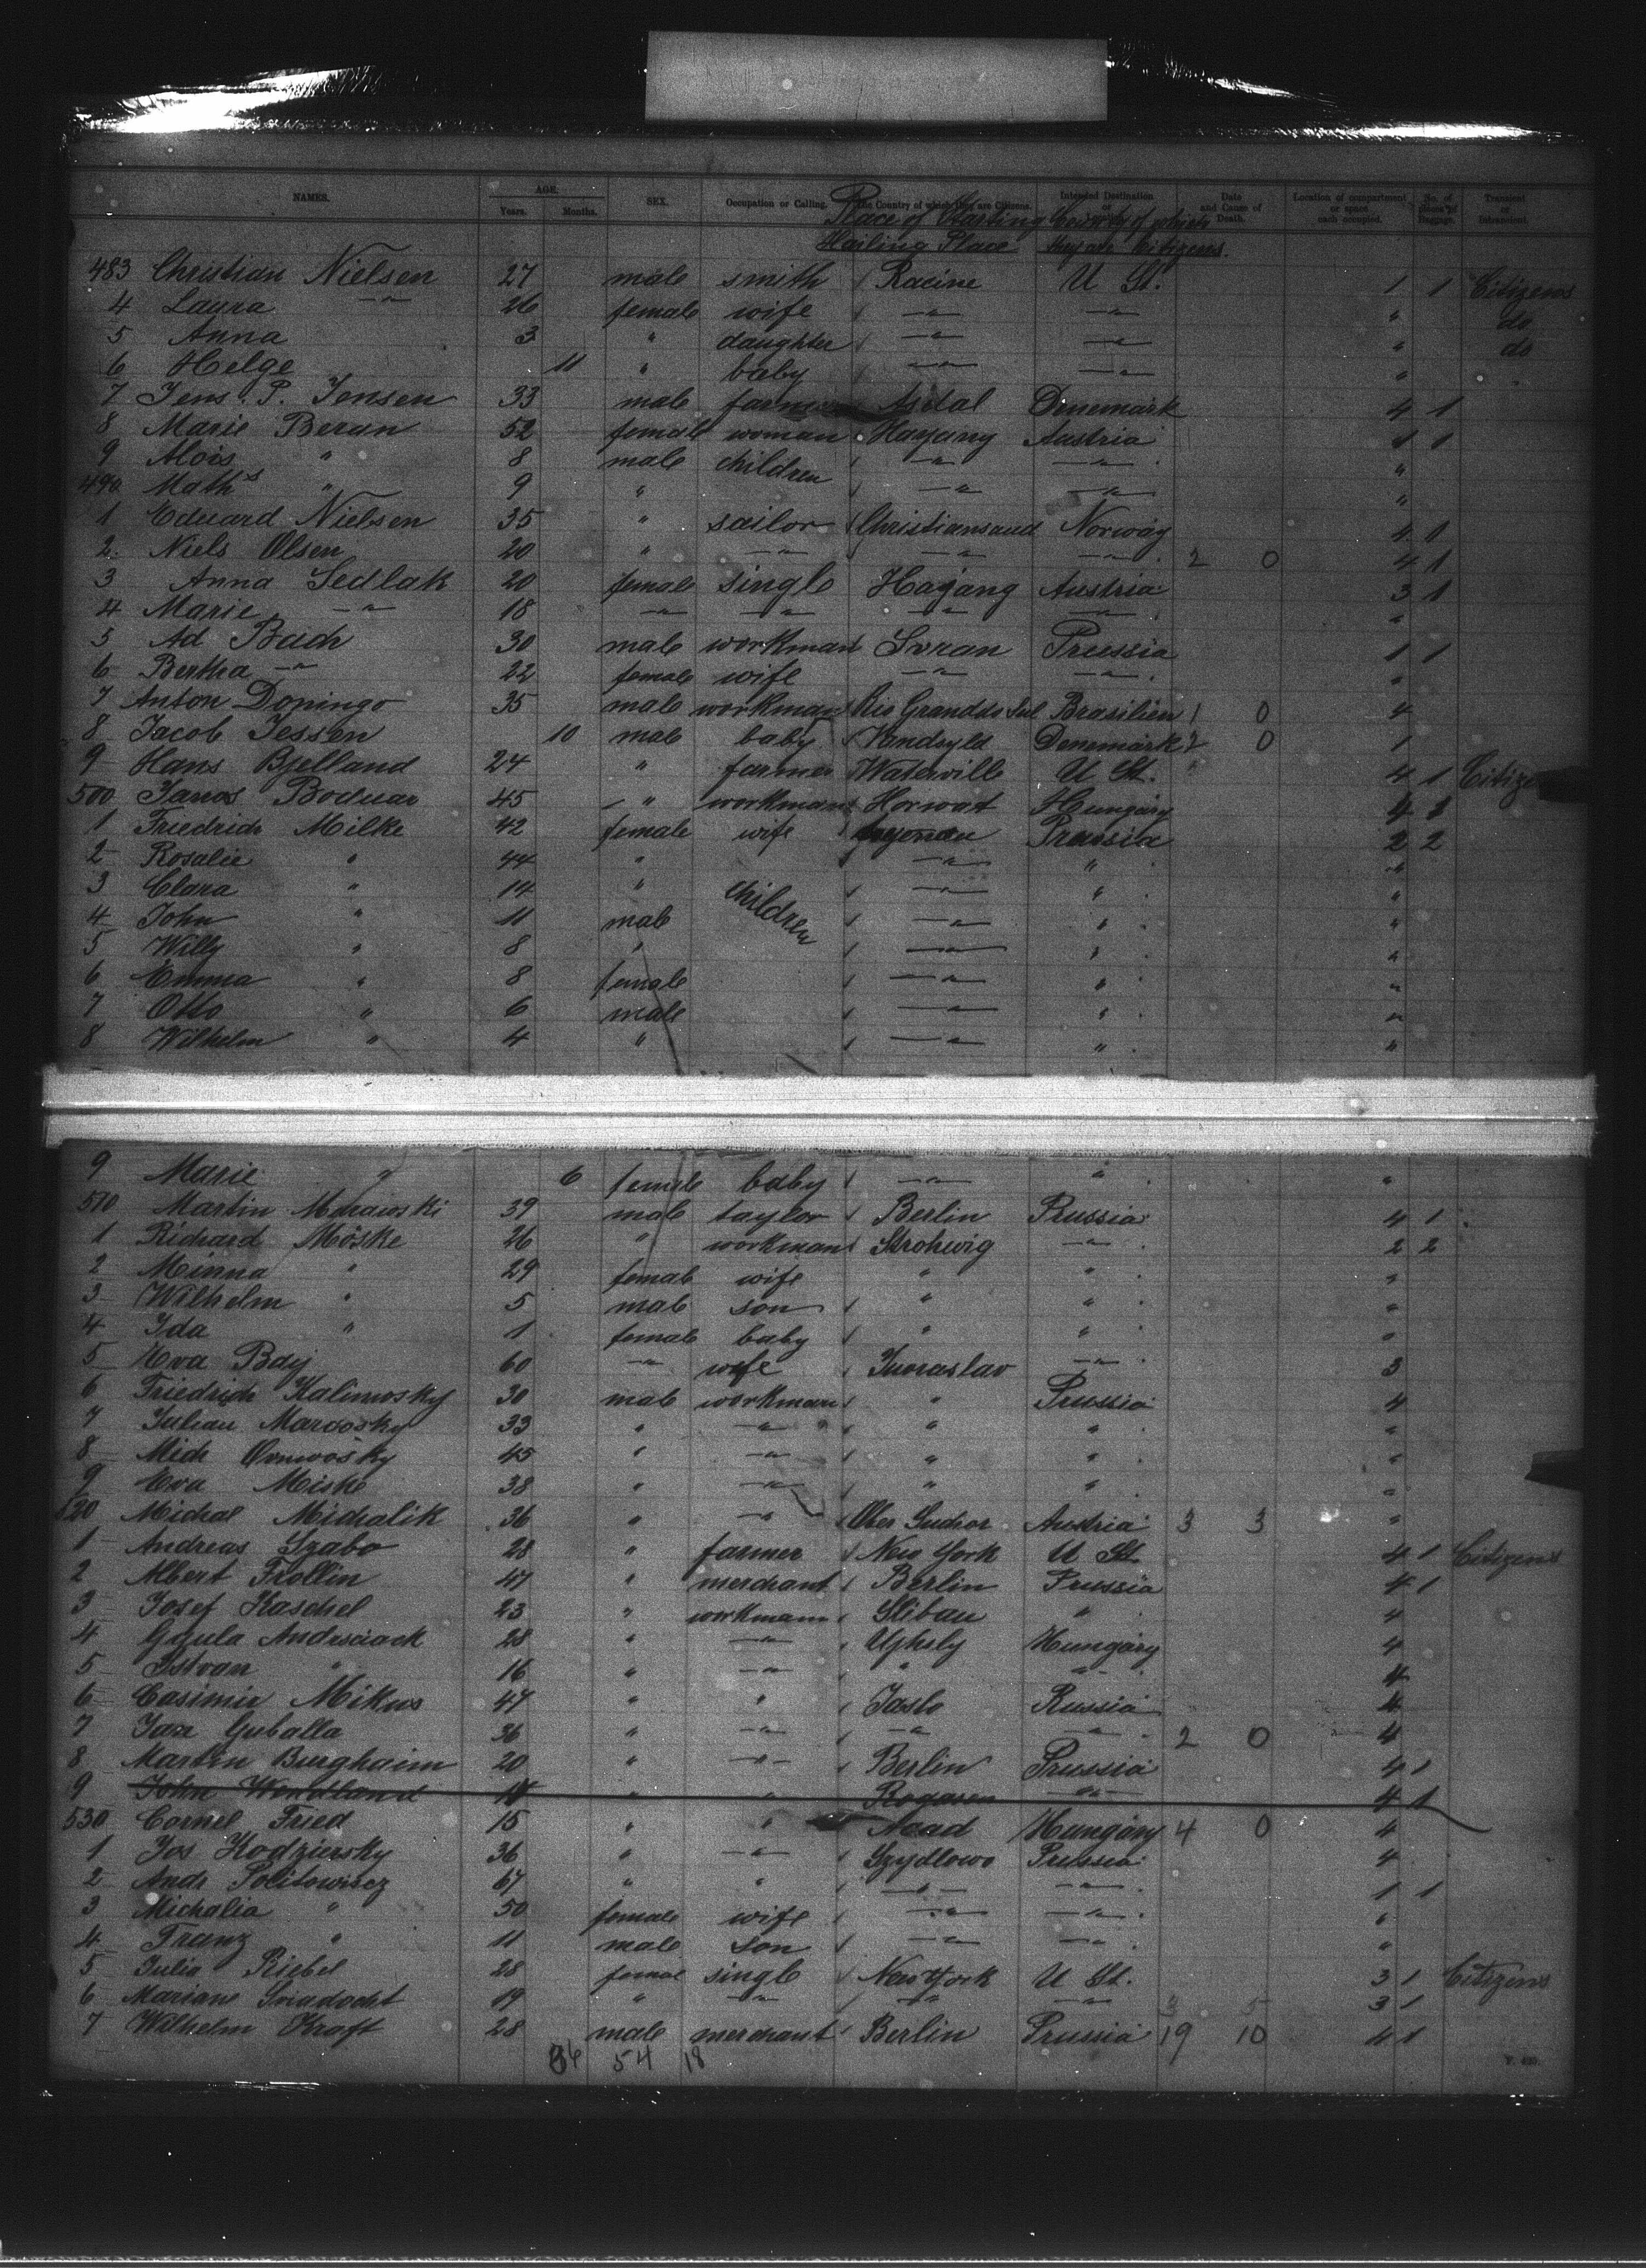 NAMES. AGE. Years. Months. SEX. Occupation or Calling. The Country of which they are Citizens. Intended Destination or Date and Cause of Death. Location of compartment or space each occupied. No. of Baggage. Transient or
Place of Starting Country of which
Hailing Place they are Citizens.
483 Christian Nielsen 27 male smith Racine U St. 1 1 Citizens
4 Laura —"— 26 female wife —"— —"— " do
5 Anna 3 " daughter —"— —"— " do
6 Helge 11 " baby —"— —"— "
7 Jens. P. Jensen 33 male farmer Asdal Denemark 4 1
8 Marie Beran 52 female woman Hayany Austria 1 1
9 Alois " 8 male children —"— —"— "
490 Math's " 9 " —"— —"— "
1 Eduard Nielsen 35 " sailor Christiansand Norway 4 1
2. Niels Olsen 20 " —"— —"— —"— 2 0 4 1
3 Anna Sedlak 20 female single Hagang Austria 3 1
4 Marie —"— 18 —"— —"— —"— —"— "
5 Ad Buch 30 male workman Soran Prussia 1 1
6 Bertha —"— 22 female wife —"— —"— "
7 Anton Doningo 35 male workman Rio Granddo Sul Brasilien 1 0 4
8 Jacob Jessen 10 male baby Vandsyld Denemark 2 0 1
9 Hans Bjelland 24 " farmer Waterville U St. 4 1
500 Janos Boduar 45 " workman Horwat Hungary 4 1
1 Friedrich Milke 42 female wife Prussia 2 2
2 Rosalie " 44 " —"— " "
3 Clara " 14 " children —"— " "
4 John " 11 male —"— " "
5 Willy " 8 " —"— " "
6 Emma " 8 female —"— " "
7 Otto " 6 male —"— " "
8 Wilhelm " 4 " —"— " "
9 Marie " 6 female baby —"— " "
510 Martin 39 male taylor Berlin Prussia 4 1
1 Richard Möske 26 " workman Strohwig —"— 2 2
2 Minna " 29 female wife " " "
3 Wilhelm " 5 male son " " "
4 Ida " 1 female baby " " "
5 Eva 60 —"— wife —"— 3
6 Friedrich Kalinwosky 30 male workman " Prussia 4
7 Julian Maroosky 33 " —"— " " "
8 Mich 45 " —"— " " "
9 Eva Miske 38 " —"— " " "
520 Michal Michalik 36 " —"— Ober Austria 3 3 "
1 Andreas Szabo 28 " farmer New York U St. 4 1 Citizens
2 Albert Frollin 47 " merchant Berlin Prussia 4 1
3 Josef Kaschel 23 " workmann Slibau " 4
4 Gyula 28 " —"— Hungary 4
5 Istvan " 16 " —"— " —"— 4
6 Casimir Mikus 47 " " Jaslo Russia 4
7 Jan Guballa 36 " —"— —"— —"— 2 0 4
8 Martin Burghaim 20 " —"— Berlin Prussia 4 1
9 John Wendland " " Rogasen —"— 4 1
530 Cornel Fried 15 " " Hungary 4 0 4
1 Jos Kodziersky 36 " —"— Szydlowo Prussia 4
2 Andr Politowisez 67 " " —"— —"— 1 1
3 Michalia " 50 female wife —"— —"— "
4 Franz " 11 male son —"— —"— "
5 Julia Riebel 28 female single New York U St. 3 1 Citizens
6 Mariane 19 " —"— —"— —"— 3 5 3 1
7 Wilhelm Kraft 28 male merchant Berlin Prussia 19 10 4 1
54 18